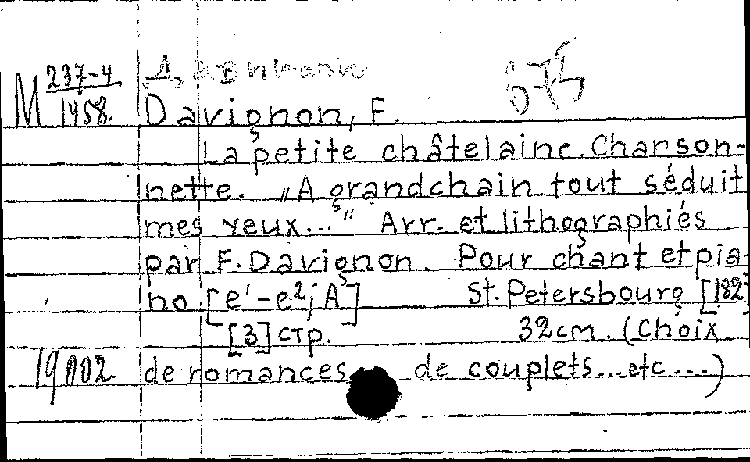 M 237-4/1458.
Davignon, F.
La petite châtelaine. Chanson-
nette. „A grandchain tout séduit
mes yeux...“ Arr. et lithographiés
par F. Davignon. Pour chant et pia-
no. [e¹-e²; A] St. Petersbourg [182
[3] стр. 32 cm. (Choix
19002 de romances de couplets...etc...)